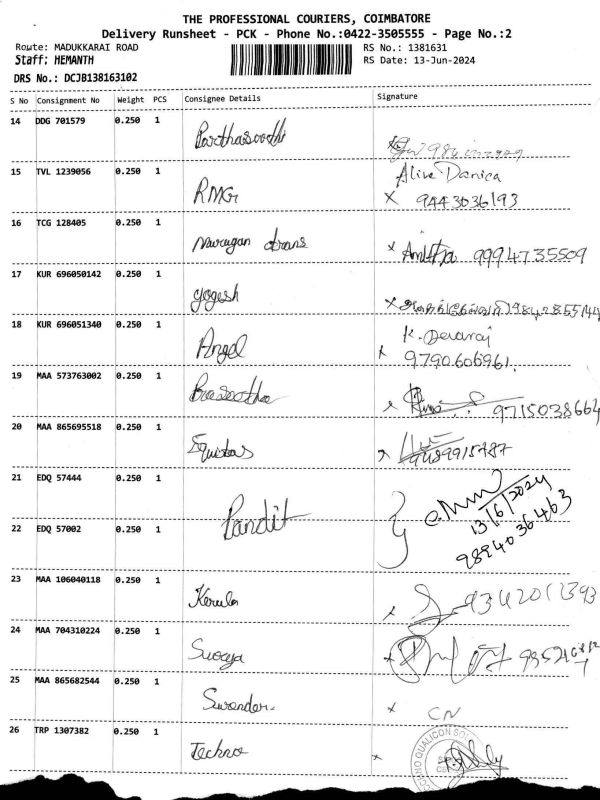 THE PROFESSIONAL COURIERS, COIMBATORE
Delivery Runsheet - PCK - Phone No.:0422-3505555 - Page No.:2
Route: MADUKKARAI ROAD RS No.: 1381631
Staff: HEMANTH RS Date: 13-Jun-2024
DRS No.: DCJB138163102
S No Consignment No Weight PCS Consignee Details Signature
14 DDG 701579 0.250 1
15 TVL 1239056 0.250 1 RMG Alive Danica
X 9443036193
16 TCG 128405 0.250 1 Murugan trans X Amitha 9994735509
17 KUR 696050142 0.250 1 yogesh
18 KUR 696051340 0.250 1 Angel K. Devaraj
X 9790606961.
19 MAA 573763002 0.250 1 X 9715038664
20 MAA 865695518 0.250 1 Equitas X 9489915787
21 EDQ 57444 0.250 1 Pandit 13/6/2024
22 EDQ 57002 0.250 1 9894036463
23 MAA 106040118 0.250 1 Kerala X 9342011393
24 MAA 704310224 0.250 1 Surya X
25 MAA 865682544 0.250 1 Surender. X CN
26 TRP 1307382 0.250 1 Techno X